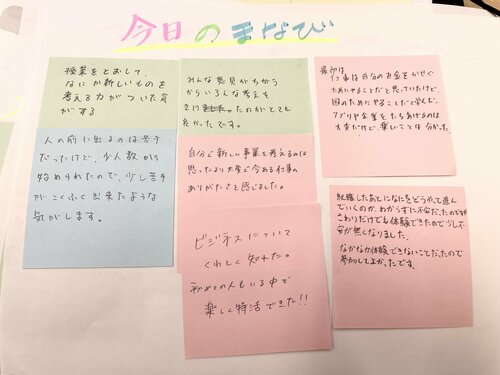 今日のまなび
授業をとおして、
なにか新しいものを
考える力がついた気
がする
人の前に出るのは苦手
だったけど、少人数から
始められたので、少し苦手
がこくふく出来たような
気がします。
みんな発見がちがう
からいろんな考えも
たのがとても
良かったです。
自分で新しい事業を考えるのは
思ったより大変で今ある仕事の
ありがたさを感じました。
ビジネスについて
くわしく知れた。
初めての人もいる中で
楽しく特活できた!!
最初は
仕事は自分のお金をかせぐ
ためにやることだと思っていたけど、
国のためにやることだと学んだ。
アプリや企業をたち あげるのは
大変だけど、楽しいことは分かった。
就職したあとになにをどうやって進ん
でいくのか、わからずに不安だったので
さわりだけでも体験できたので少し不
安が無くなりました。
なかなか体験できないことだったので
参加してよかったです。